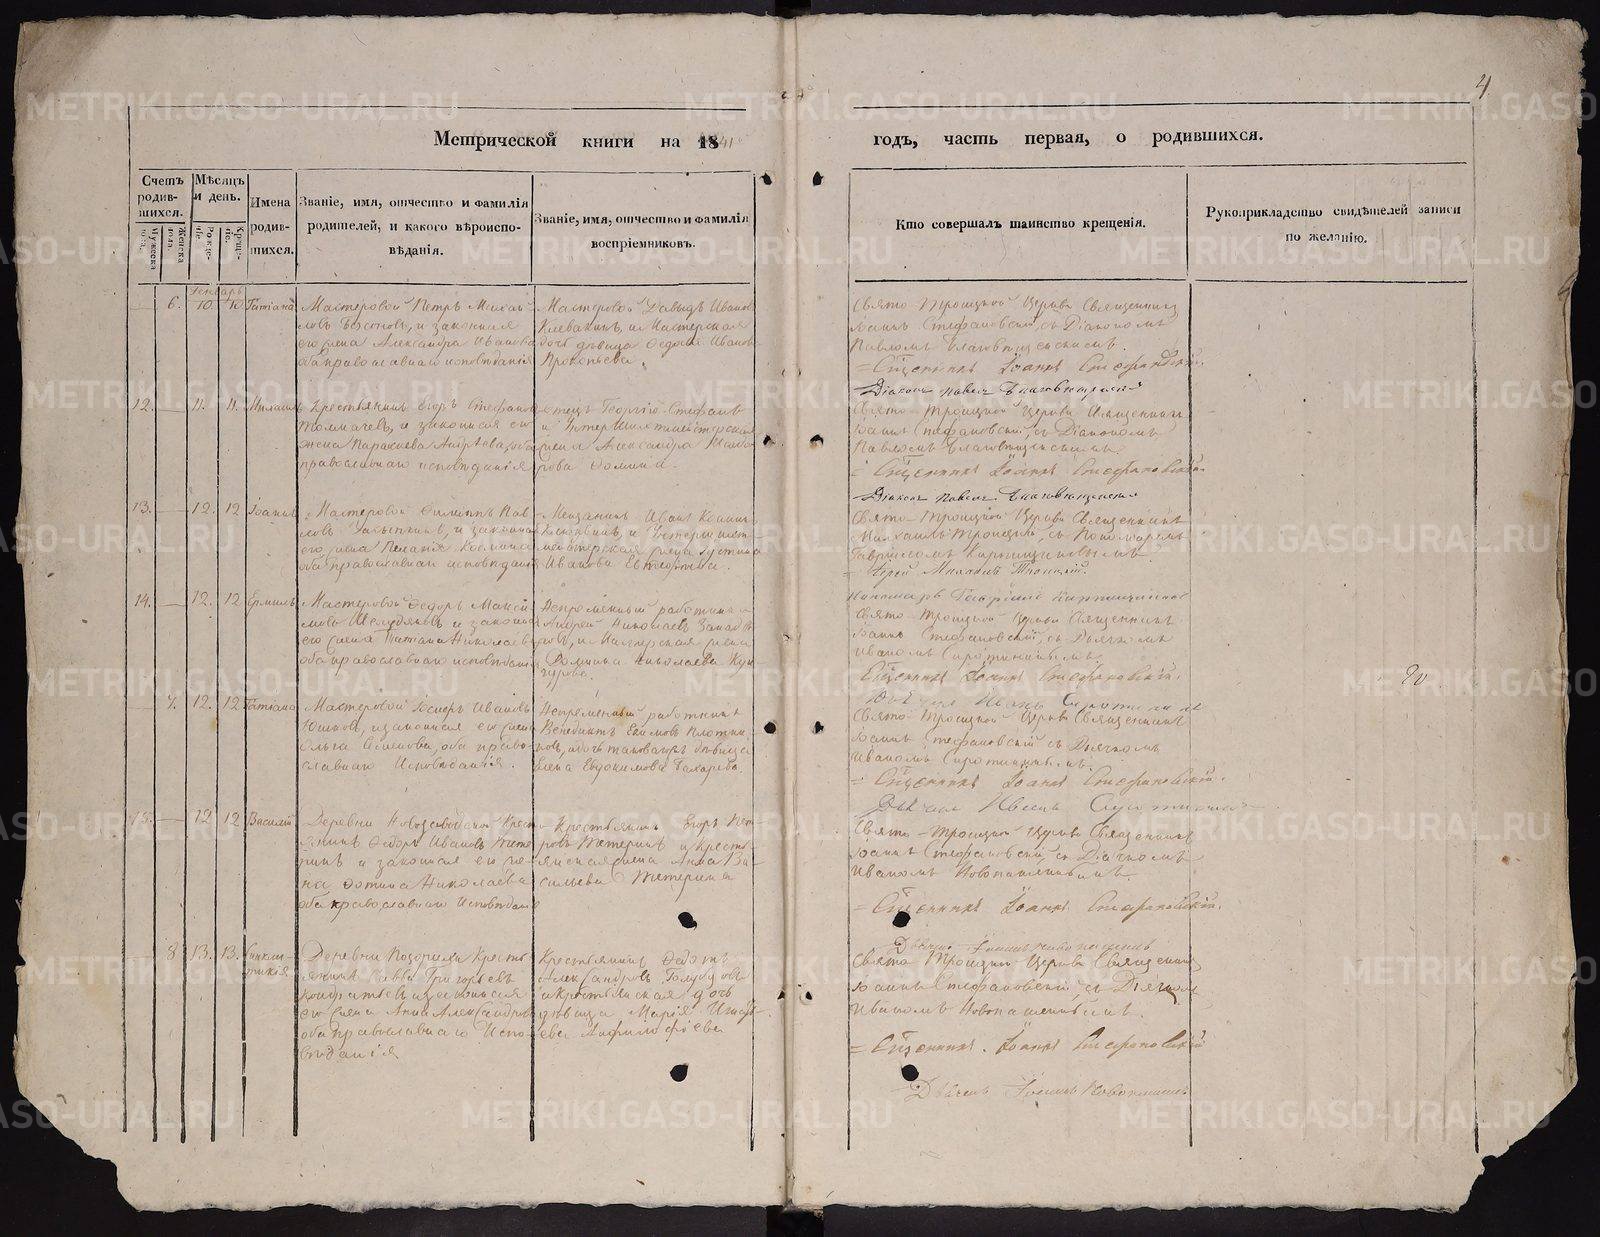 4
Метрической книги на 1841
годъ, часть первая, о родившихся.
Счетъ родив-шихся.
Мужеска пола.
Женска пола.
Мѣсяцъ и день.
Рожде-нiе.
Креще-нiе.
Имена родив-шихся.
Званiе, имя, отчество и фамилiя
родителей, и какого вѣроиспо-
вѣданiя.
Званiе, имя, отчество и фамилiя
воспрiемниковъ.
Кто совершалъ таинство крещенiя.
Рукоприкладство свидѣтелей записи
по желанiю.
Генварь
6. 10 10 Татiана
Мастеровой Петръ Михай-
ловъ и законная
его жена Александра Иванова
оба православнаго исповѣданiя
Мастеровой Давыдъ Иванов
Клевакинъ, и Мастерская
дочь дѣвица Федосья Иванова
Прокопьева.
Свято-Троицкой Церкви Священникъ
Iоаннъ Стефановскiй, съ Дiакономъ
Павломъ Благовѣщенскимъ.
Священникъ Iоаннъ Стефановскiй.
Дiаконъ Павелъ Благовѣщенскiй
12. 11. 11. Михаилъ
Крестьянинъ Егоръ Стефанов
Толмачевъ, и законная его
жена Параскева Андреева, оба
православнаго исповѣданiя
Георгiй Стефановъ
и Унтер Шихтмейстерская
жена Александра
Свято-Троицкой Церкви Священникъ
Iоаннъ Стефановскiй, съ Дiакономъ
Павломъ Благовѣщенскимъ
Священникъ Iоаннъ Стефановскiй.
Дiаконъ Павелъ Благовѣщенскiй
13. 12. 12 Iоаннъ
Мастеровой Филиппъ Пав-
ловъ и законная
его жена Пелагiя
оба православнаго исповѣданiя
Мещанинъ Иванъ
и Унтершихт-
мейстерская жена Устинья
Иванова
Свято-Троицкой Церкви Священникъ
Михаилъ Троицкiй, съ Пономаремъ
Гаврiиломъ
Iерей Михаилъ Троицкiй.
Пономарь Гаврiилъ
14. 12. 12 Ермилъ
Мастеровой Федоръ Макси-
мовъ и законная
его жена Татiана Николаева
оба православнаго исповѣданiя
Непремѣнный работникъ
Андрей Николаевъ
и Мастерская жена
Домника Николаева Кун-
гурова.
Свято-Троицкой Церкви Священникъ
Iоаннъ Стефановскiй, съ Дьячкомъ
Иваномъ Сиротинымъ.
Священникъ Iоаннъ Стефановскiй.
Дьячекъ Иванъ Сиротинъ
7. 12. 12 Татiана
Мастеровой Iосифъ Ивановъ
Юшковъ, и законная его жена
Ольга Семенова, оба право-
славнаго Исповѣданiя.
Непремѣнный работникъ
Венедиктъ Екимовъ Плотни-
ковъ, и дочь таковагожъ дѣвица
Елена Евдокимова
Свято-Троицкой Церкви Священникъ
Iоаннъ Стефановскiй съ Дьячкомъ
Иваномъ Сиротинымъ.
Священникъ Iоаннъ Стефановскiй.
Дьячекъ Иванъ Сиротинъ
15. 12 12 Василiй
Деревни Новозаводской Крест-
янинъ Федоръ Ивановъ Тете-
ринъ и законная его же-
на Фотина Николаева
оба православнаго Исповѣданiя
Крестьянинъ Егоръ Пет-
ровъ Тетеринъ и кресть-
янская жена Анна Ва-
сильева Тетерина
Свято-Троицкой Церкви Священникъ
Iоаннъ Стефановскiй, съ Дiячкомъ
Иваномъ Новопашеннымъ.
Священникъ Iоаннъ Стефановскiй.
Дьячекъ Iоаннъ Новопашенъ
8 13. 13. Синкли-
тикiя
Деревни Позорихи Кресть-
янинъ Савва Григорьевъ
Кондратьевъ и законная
его жена Анна Александрова
оба православнаго Испо-
вѣданiя
Крестьянинъ Федотъ
Александровъ Голубцовъ
и крестьянская дочь
дѣвица Марiя
ева Анфилофiева
Свято Троицкой Церкви Священникъ
Iоаннъ Стефановскiй, съ Дiячкомъ
Иваномъ Новопашеннымъ.
Священникъ Iоаннъ Стефановскiй
Дьячекъ Iоаннъ Новопашенъ
METRIKI.GASO-URAL.RU